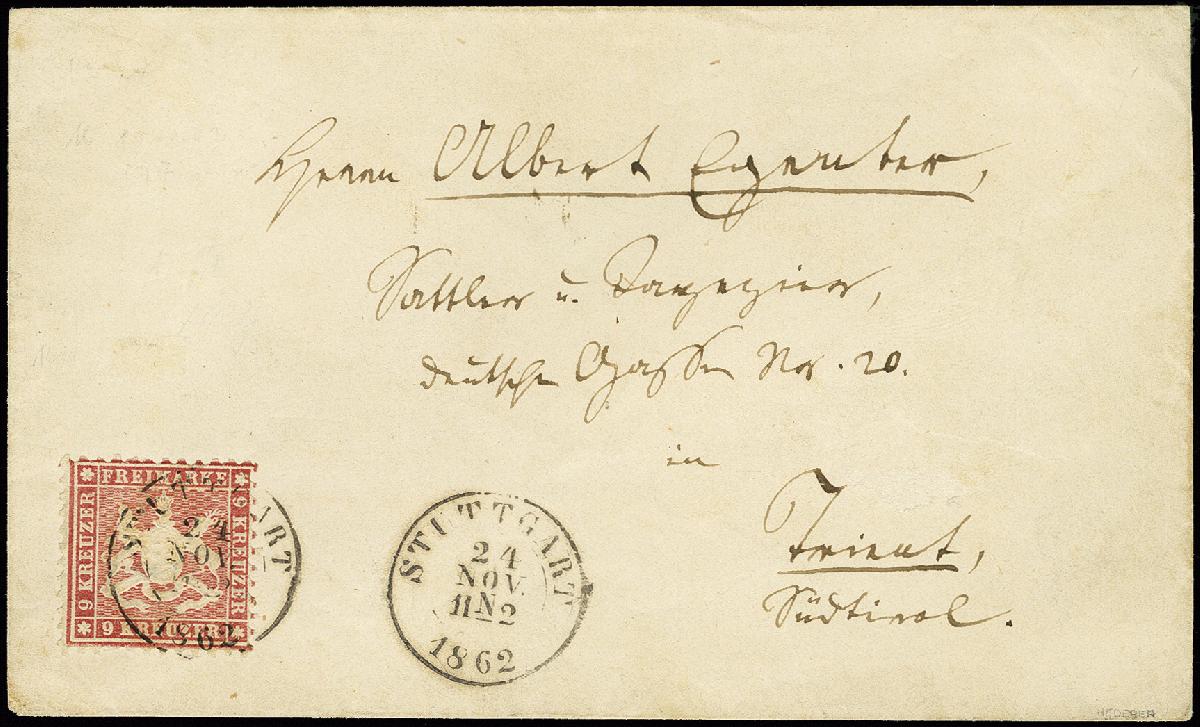 Herrn Albert Egenter,
Sattler u. Tapezier,
deutsche Gasse Nro. 20.
in
Trient,
Südtirol.
FREIMARKE
9 KREUZER
9 KREUZER
9 KREUZER
STUTTGART
24
NOV
1862
STUTTGART
24
NOV.
II N 2
1862